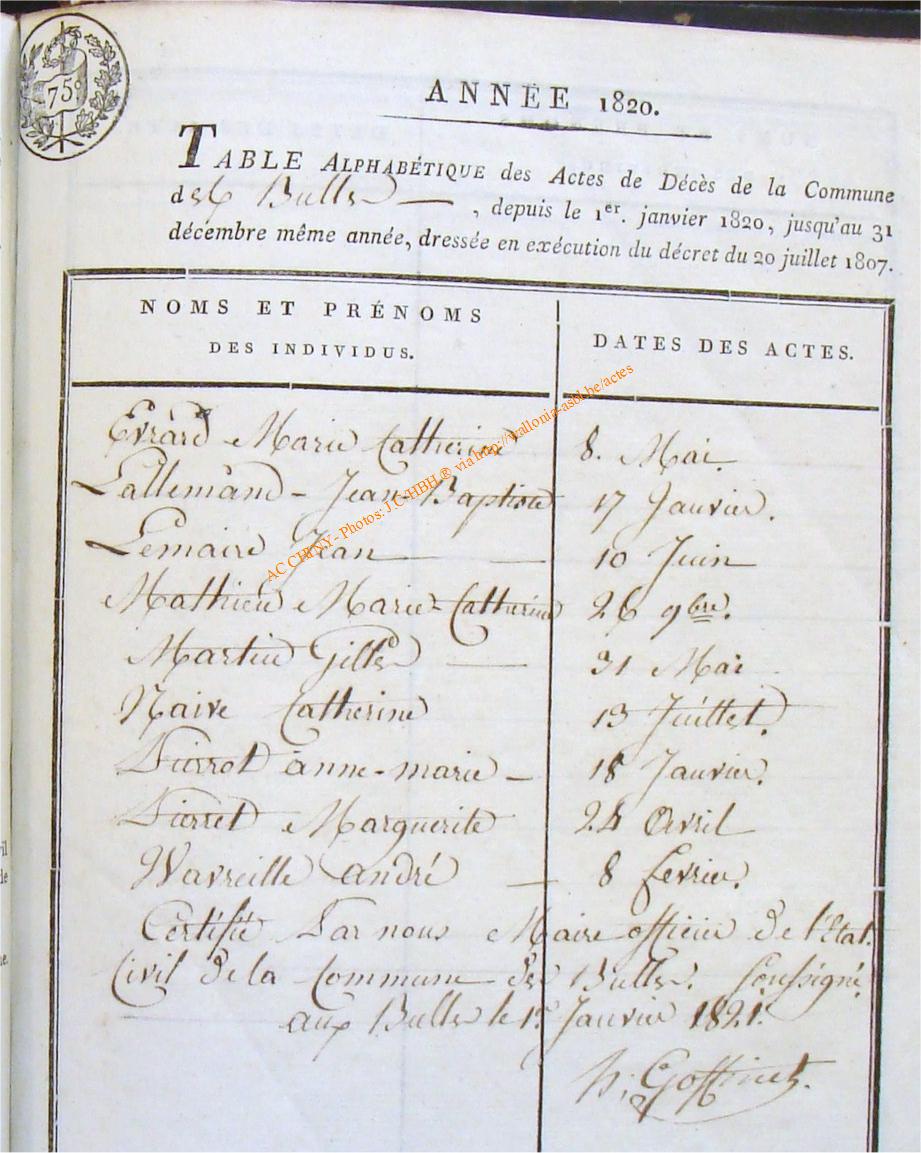 75c
ANNÉE 1820.
TABLE ALPHABÉTIQUE des Actes de Décès de la Commune
des Bulles — , depuis le 1er. janvier 1820, jusqu'au 31
décembre même année, dressée en exécution du décret du 20 juillet 1807.
NOMS ET PRÉNOMS
DES INDIVIDUS.
DATES DES ACTES.
Evrard Marie Catherine 8. Mai.
Lallemand - Jean-Baptiste 17 Janvier.
Lemaire Jean — 10 Juin
Mathieu Marie-Catherine 26 9bre.
Martin Gilles — 31 Mai
Naive Catherine 13 Juillet.
Pierrot anne-marie — 18 Janvier.
Pierret Marguerite 24 Avril
Wavreille andré — 8 fevrier.
Certifié Par nous Maire officier de l'Etat.
Civil de la Commune des Bulles. Soussigné.
aux Bulles le 1er Janvier 1821.
h; Goffinet.
AC CHINY - Photos: J.C-HBH ® via http://wallonia-asbl.be/actes